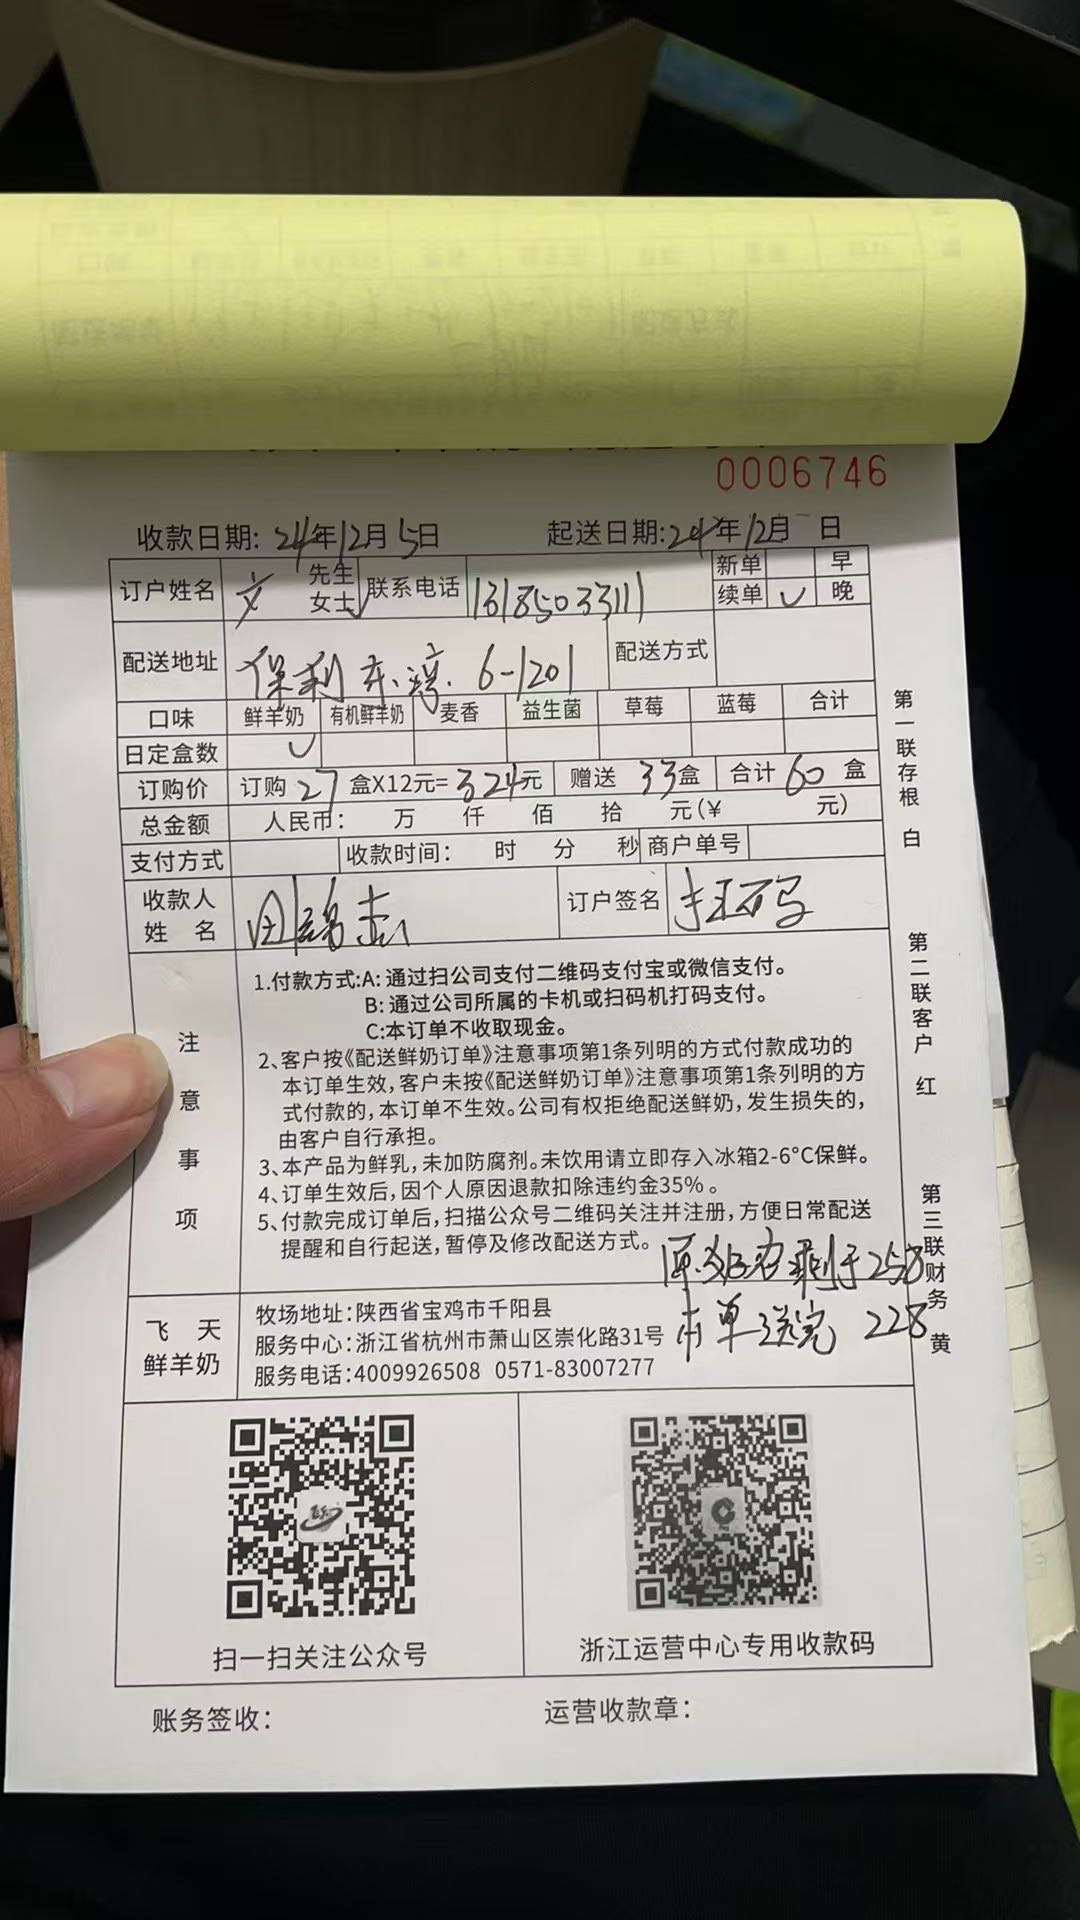 0006746
收款日期: 24年12月5日 起送日期:24年12月 日
订户姓名 文 先生 女士✓ 联系电话 13185033111 新单 早
续单 ✓ 晚
配送地址 保利东 6-1201 配送方式
口味 鲜羊奶 有机鲜羊奶 麦香 益生菌 草莓 蓝莓 合计
日定盒数 ✓
订购价 订购 27 盒X12元= 324元 赠送 33盒 合计 60 盒
总金额 人民币: 万 仟 佰 拾 元(¥ 元)
支付方式 收款时间: 时 分 秒 商户单号
收款人姓名 订户签名 扫码
注意事项
1.付款方式:A: 通过扫公司支付二维码支付宝或微信支付。
B: 通过公司所属的卡机或扫码机打码支付。
C:本订单不收取现金。
2、客户按《配送鲜奶订单》注意事项第1条列明的方式付款成功的
本订单生效,客户未按《配送鲜奶订单》注意事项第1条列明的方
式付款的,本订单不生效。公司有权拒绝配送鲜奶,发生损失的,
由客户自行承担。
3、本产品为鲜乳,未加防腐剂。未饮用请立即存入冰箱2-6°C保鲜。
4、订单生效后,因个人原因退款扣除违约金35%。
5、付款完成订单后,扫描公众号二维码关注并注册,方便日常配送
提醒和自行起送,暂停及修改配送方式。
剩于258
本单送完 228
飞天鲜羊奶
牧场地址:陕西省宝鸡市千阳县
服务中心:浙江省杭州市萧山区崇化路31号
服务电话:4009926508 0571-83007277
扫一扫关注公众号 浙江运营中心专用收款码
账务签收: 运营收款章:
第一联存根 白
第二联客户 红
第三联财务 黄